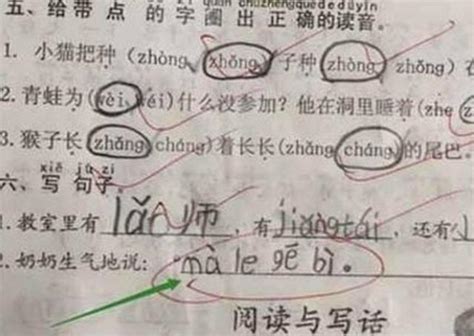 chū zhèng què de dú yīn
五、给带点的字圈出正确的读音。
1. 小猫把种(zhòng zhǒng)子种(zhòng zhǒng)在
2. 青蛙为(wèi wéi)什么没参加？他在洞里睡着(zhe
3. 猴子长(zhǎng cháng)着长长(zhǎng cháng)的尾巴
xiě jù zi
六、写句子。
1. 教室里有lǎo师，有jiǎngtái，还有
2. 奶奶生气地说：mà le gē bì。
阅读与写话